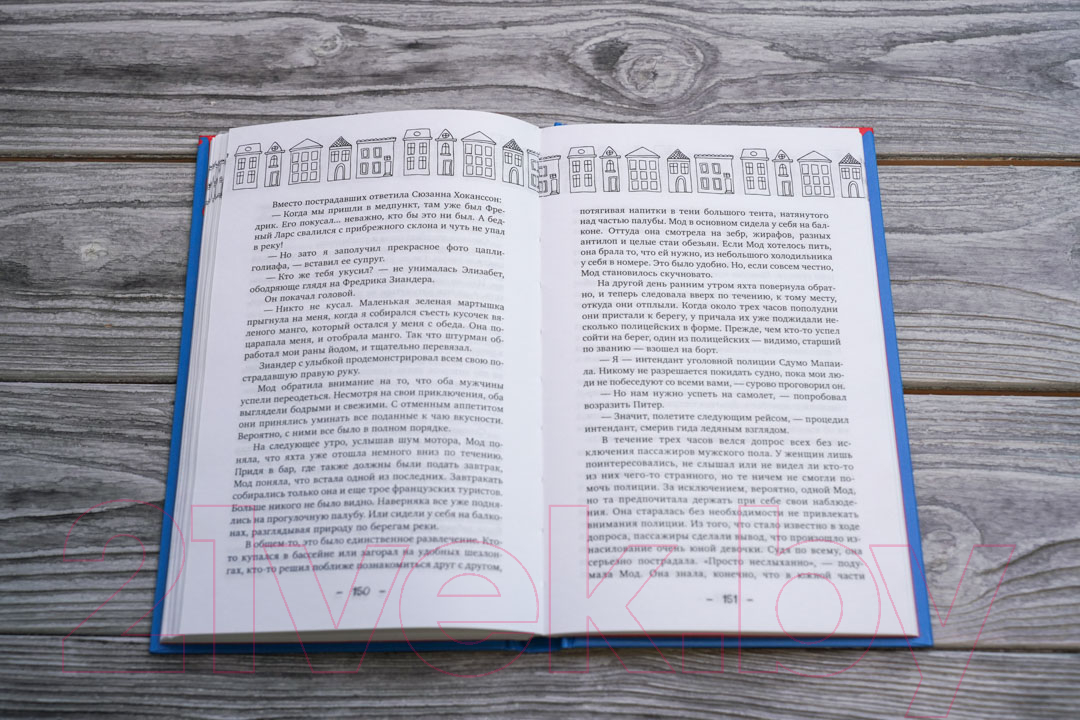 Вместо пострадавших ответила Сюзанна Хоканссон:
— Когда мы пришли в медпункт, там уже был Фре-
дрик. Его покусал... неважно, кто бы это ни был. А бед-
ный Ларс свалился с прибрежного склона и чуть не упал
в реку!
— Но зато я заполучил прекрасное фото цапли-
голиафа, — вставил ее супруг.
— Кто же тебя укусил? — не унималась Элизабет,
ободряюще глядя на Фредрика Зиандера.
Он покачал головой.
— Никто не кусал. Маленькая зеленая мартышка
прыгнула на меня, когда я собирался съесть кусочек вя-
леного манго, который остался у меня с обеда. Она по-
царапала меня, и отобрала манго. Так что штурман об-
работал мои раны йодом, и тщательно перевязал.
Зиандер с улыбкой продемонстрировал всем свою по-
страдавшую правую руку.
Мод обратила внимание на то, что оба мужчины
успели переодеться. Несмотря на свои приключения, оба
выглядели бодрыми и свежими. С отменным аппетитом
они принялись уминать все поданные к чаю вкусности.
Вероятно, с ними все было в полном порядке.
На следующее утро, услышав шум мотора, Мод по-
няла, что яхта уже отошла немного вниз по течению.
Придя в бар, где также должны были подать завтрак,
Мод поняла, что встала одной из последних. Завтракать
собирались только она и еще трое французских туристов.
Больше никого не было видно. Наверняка все уже подня-
лись на прогулочную палубу. Или сидели у себя на балко-
нах, разглядывая природу по берегам реки.
В общем то, это было единственное развлечение. Кто-
то купался в бассейне или загорал на удобных шезлон-
гах, кто-то решил поближе познакомиться друг с другом,
- 150 -
потягивая напитки в тени большого тента, натянутого
над частью палубы. Мод в основном сидела у себя на бал-
коне. Оттуда она смотрела на зебр, жирафов, разных
антилоп и целые стаи обезьян. Если Мод хотелось пить,
она брала то, что ей нужно, из небольшого холодильника
у себя в номере. Это было удобно. Но, если совсем честно,
Мод становилось скучновато.
На другой день ранним утром яхта повернула обрат-
но, и теперь следовала вверх по течению, к тому месту,
откуда они отплыли. Когда около трех часов пополудни
они пристали к берегу, у причала их уже поджидали не-
сколько полицейских в форме. Прежде, чем кто-то успел
сойти на берег, один из полицейских — видимо, старший
по званию — взошел на борт.
— Я — интендант уголовной полиции Сдумо Мапаи-
ла. Никому не разрешается покидать судно, пока мои лю-
ди не побеседуют со всеми вами, — сурово проговорил он.
— Но нам нужно успеть на самолет, — попробовал
возразить Питер.
— Значит, полетите следующим рейсом, — процедил
интендант, смерив гида ледяным взглядом.
В течение трех часов велся допрос всех без ис-
ключения пассажиров мужского пола. У женщин лишь
поинтересовались, не слышал или не видел ли кто-то
из них чего-то странного, но те ничем не смогли по-
мочь полиции. За исключением, вероятно, одной Мод,
но та предпочитала держать при себе свои наблюде-
ния. Она старалась без необходимости не привлекать
внимания полиции. Из того, что стало известно в ходе
допроса, пассажиры сделали вывод, что произошло из-
насилование очень юной девочки. Судя по всему, она
серьезно пострадала. «Просто неслыханно», — поду-
мала Мод. Она знала, конечно, что в южной части
- 151 -
21vek.by